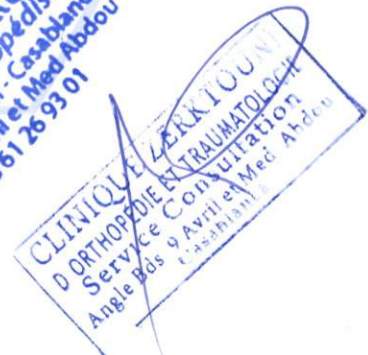 opédis
- Casablanc
il et Med Abdou
61 26 93 01
CLINIQUE ZERKTOUNI
D ORTHOPEDIE ET TRAUMATOLOGIE
Service Consultation
Angle Bds 9 Avril et Med Abdou
Casablanca